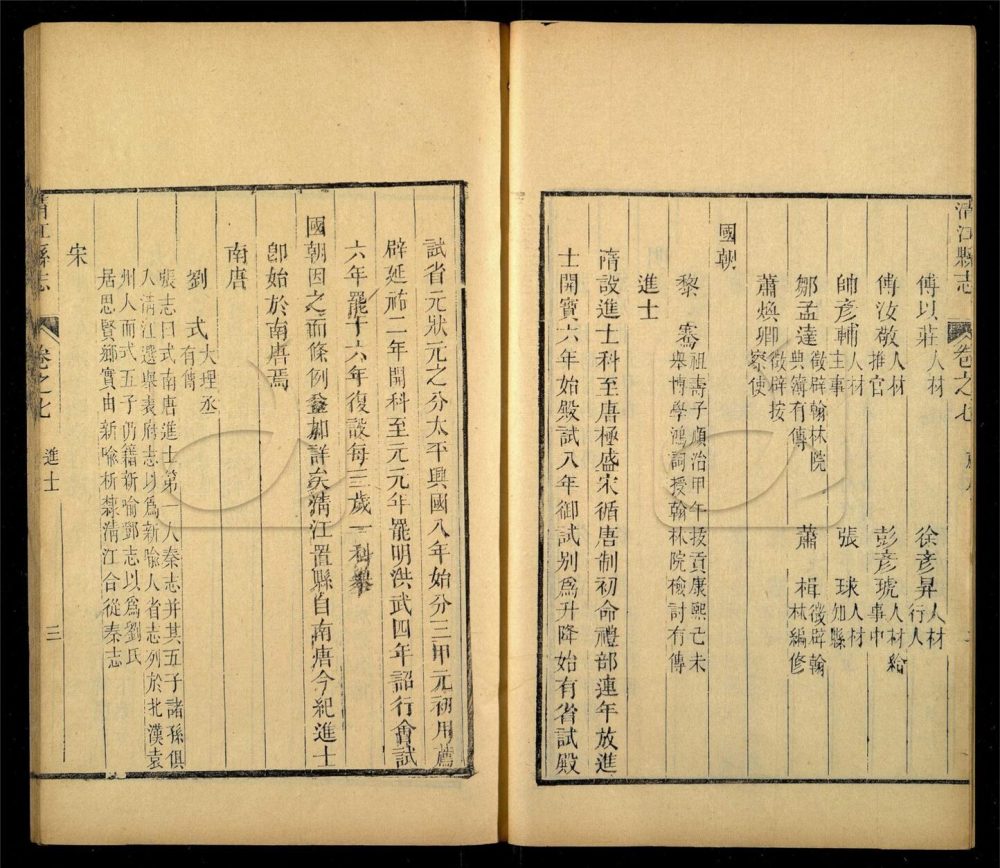 清江縣志 卷之七
傅以莊人材 徐彥昇人材行人
傅汝敬人材推官 彭彥琥人材給事中
帥彥輔人材主事 張 球人材知縣
鄒孟達徵辟翰林院典簿有傳 蕭 楫徵辟翰林編修
蕭煥卿徵辟按察使
國朝
黎 騫祖壽子順治甲午拔貢康熙己未舉博學鴻詞授翰林院檢討有傳
進士
隋設進士科至唐極盛宋循唐制初命禮部連年放進
士開寶六年始殿試八年御試别爲升降始有省試殿
試省元狀元之分太平興國八年始分三甲元初用薦
辟延祐二年開科至元元年罷明洪武四年詔行會試
六年罷十六年復設每三歲一科舉
國朝因之而條例益加詳矣清江置縣自南唐今紀進士
卽始於南唐焉
南唐
劉 式大理丞有傳
張志曰式南唐進士第一人秦志并其五子諸孫俱
入清江選舉表府志以爲新喻人省志列於北漢袁
州人而式五子仍籍新喻鄧志以爲劉氏
居思賢鄉實由新喻析隸清江合從秦志
宋
清江縣志 卷之七 進士 三